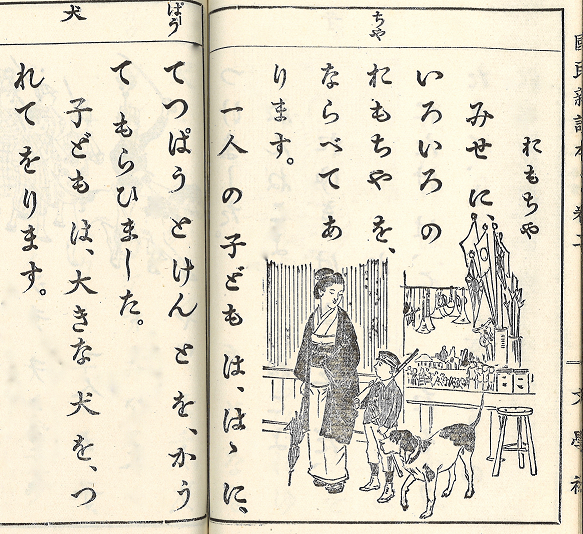 ちや
おもちや
みせ に、
いろいろ の
おもちや を、
ならべて あ
ります。
一人 の 子ども は、はゝ に、
ぱう
犬
てつぱう と けん と を、かう
て もらひました。
子ども は、大きな 犬 を、つ
れて をります。